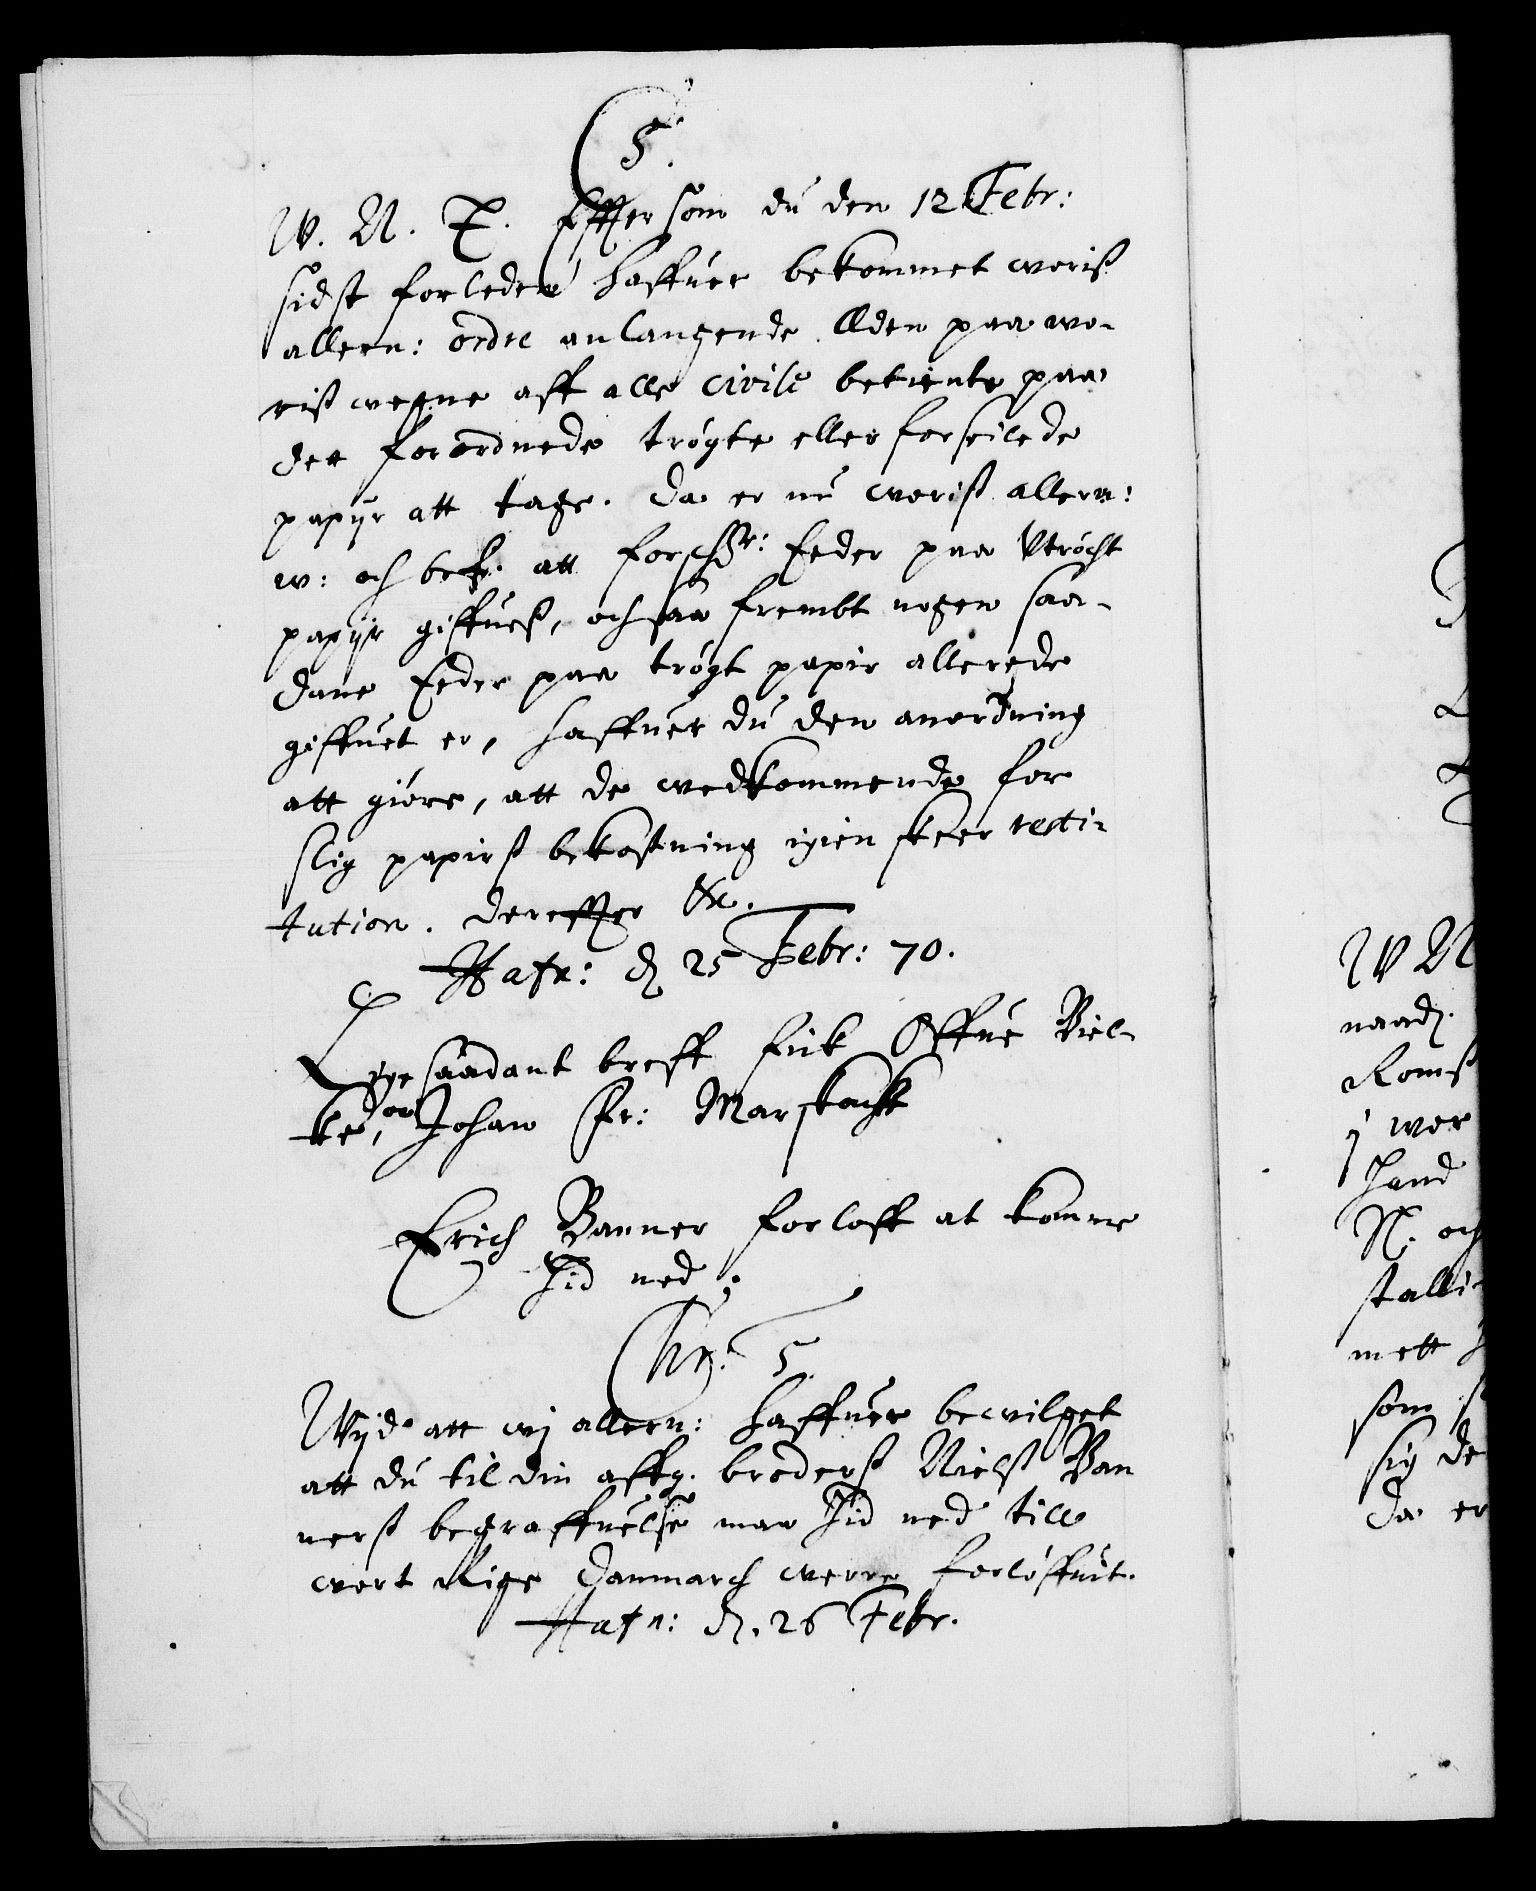 C 5.
W. N. T. Effter som du den 12 Febr:
sidst forleden haffuer bekommet woriß
allern: ordre anlangende Eden paa wo-
riß wegne aff alle civile betiente paa
det forordnede trögte eller forseilede
papijr att tage. da er nu woriß allern:
w: och bef: att forschr: Eeder paa Vtröcht
papijr giffueß, och saa frembt nogen saa-
dane Eeder paa trögt papir allerede
giffuet er, haffuer du den anordning
att giöre, att de wedkommende for
slig papirß bekostning igien skeer resti-
tution. dereffter &c.
Hafn: d. 25 Febr: 70.
Lige saadant breff fick Offue Biel-
ke, oc Johan Fr: Marschalk
Erich Banner forloff at komme
hid ned:
Chr: 5.
Wijd att wj allern: haffuer bewilget
att du til din affg. broderß Nielß Ban
nerß begraffuelse maa hid ned till
wort Rige Danmarch werre forlöffuit.
Hafn: d. 26 Febr.
W N
naad.
Romß
j wor
Hand
N. och
stalli-
mett
som
sig de
da er